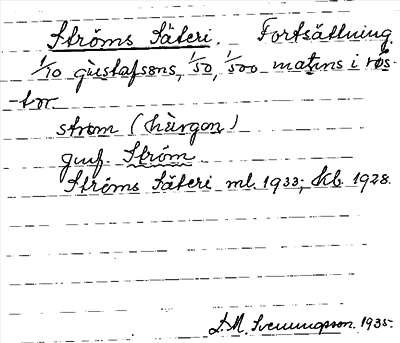 Ströms Säteri. Fortsättning.
1/10 gustafsons, 1/50, 1/500 matins i rös-
-tor
strom (hùrgon)
gmf. Ström
Ströms Säteri ml. 1933; Kb. 1928.
D.M. Svenungsson. 1935.